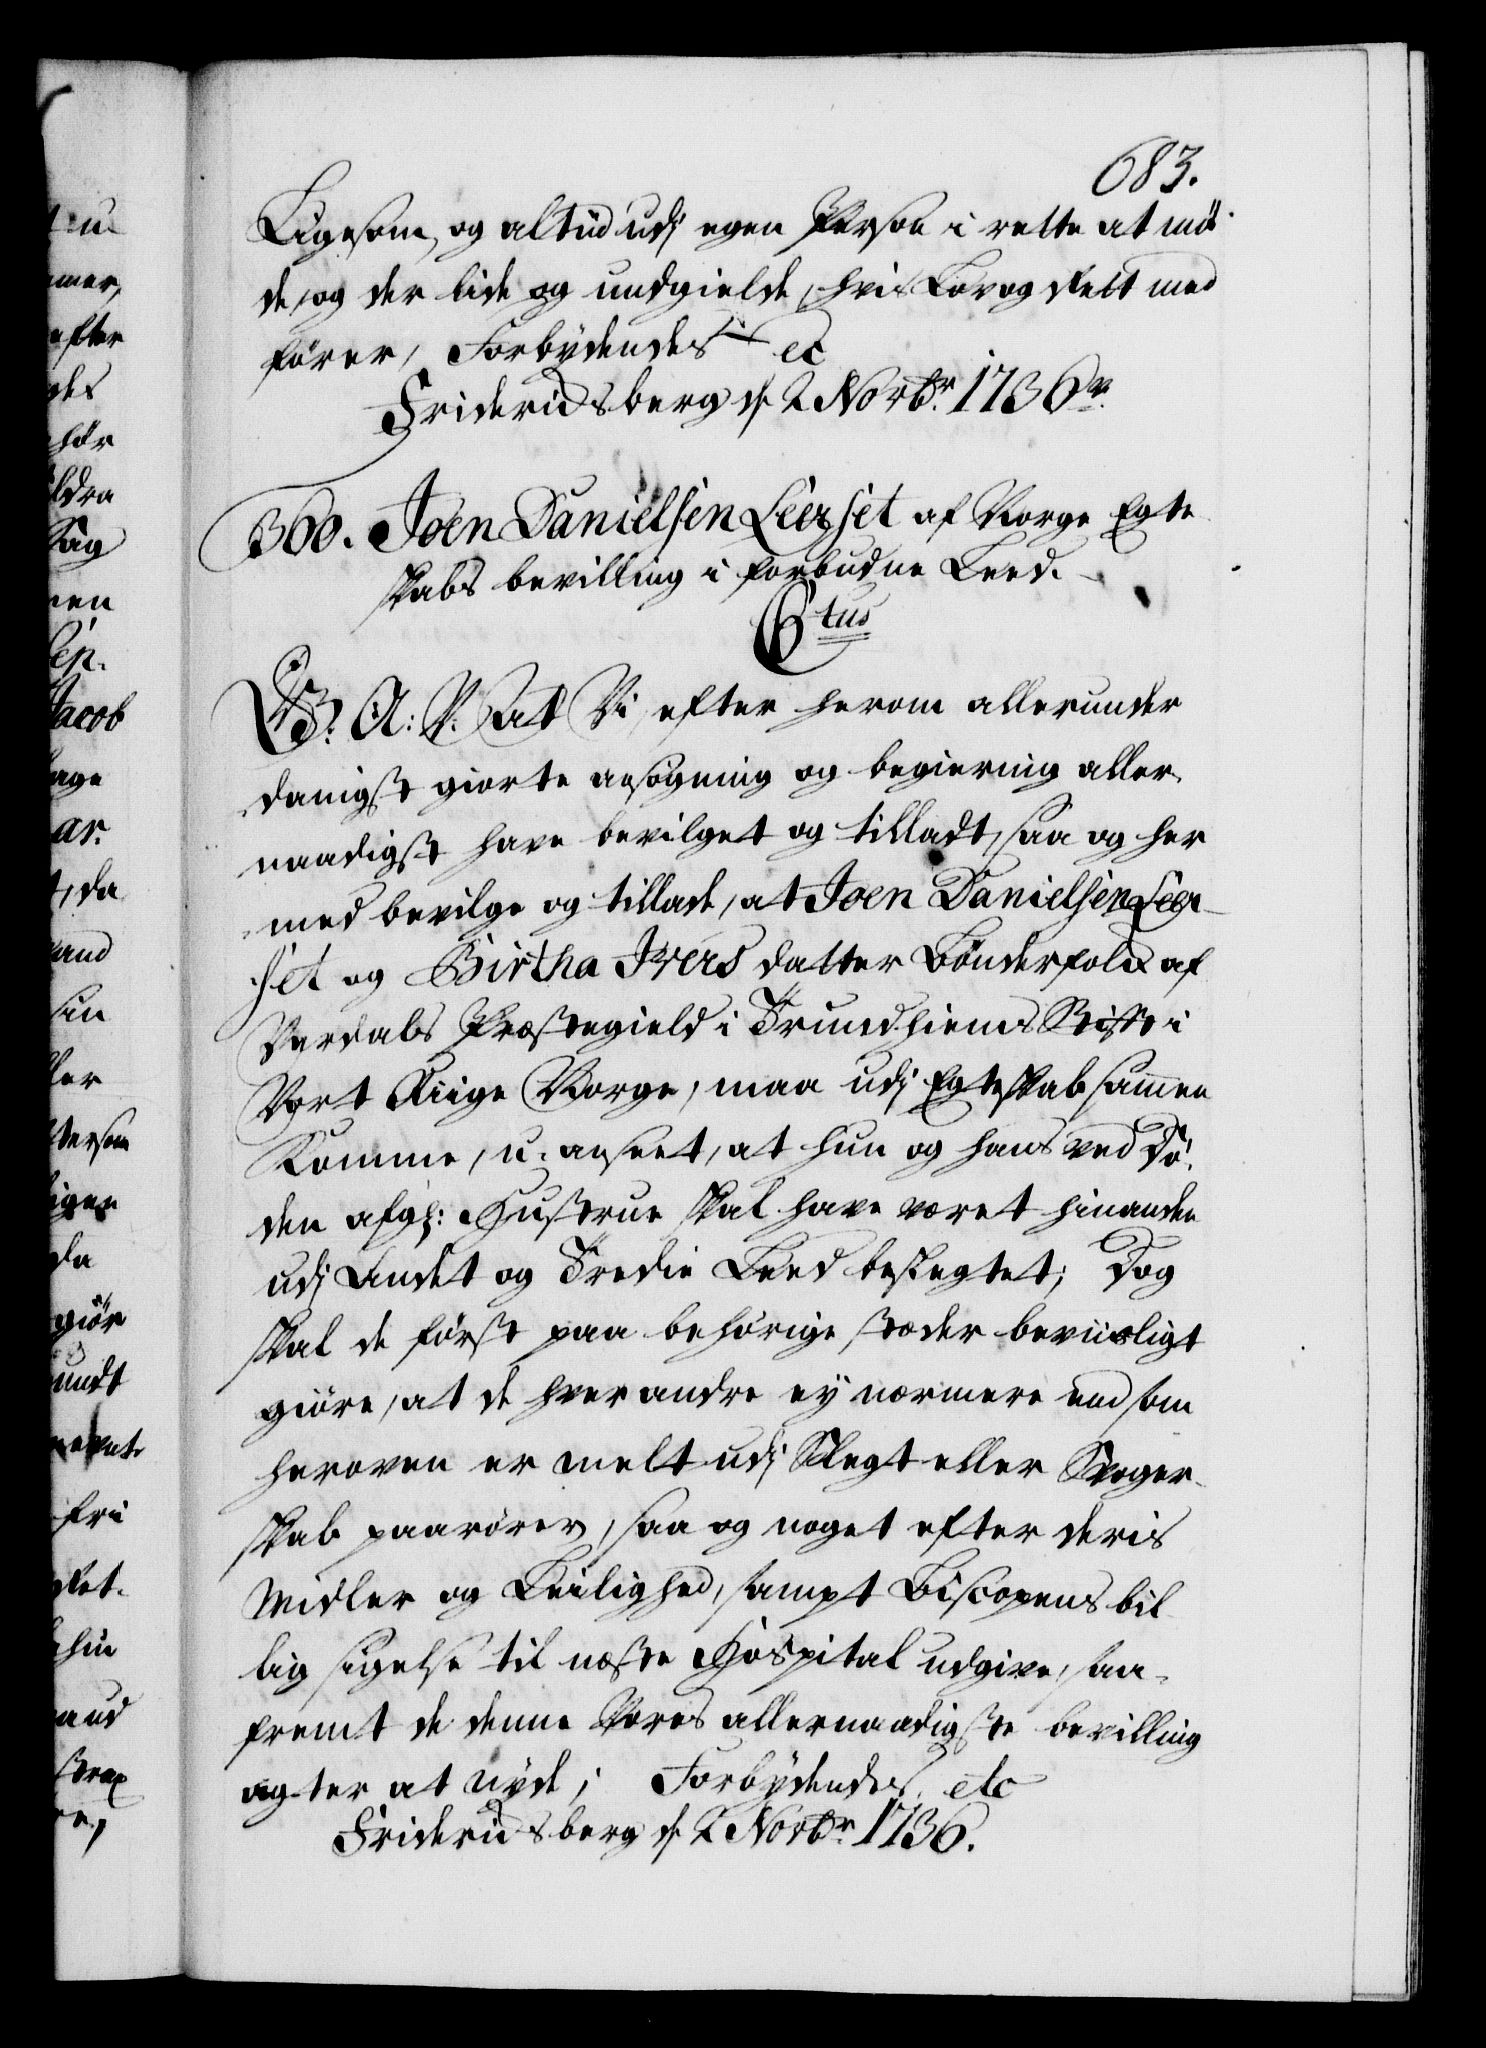 683.
Ligesom og altiid udj egen Persohn i rette at mö-
de, og der lide og undgielde, hvis Lov og Rett med
förer, Forbydendes etc
Friderichsberg d 2 Novbr. 1736.
360. Joen Danielsen Leerset af Norge Egte
skabs bevilling i forbudne Leed.
Ctus
G: A: V. At Vi efter herom allerunder
danigst giorte ansögning og begiering aller-
naadigst have bevilget og tilladt, saa og her
med bevilge og tillade, at Joen Danielsen Leer-
set og Birtha Ivers datter Bönderfolck af
Verdals Præstegield i Trundhiems Stifft i
Vort Riige Norge, maa udj Egteskab sammen
Komme, u-anseet, at hun og hans ved Dö-
den afg: Hustrue skal have været hinanden
udj Andet og Tredie Leed beslegtet; Dog
skal de först paa behörige stæder beviisligt
giöre, at de hverandre ey nærmere end som
heroven er melt udj Slegt eller Svoger-
skab paarörer, saa og noget efter deris
Midler og Leilighed, sampt Biscopens bil-
lig sigelse til næste Hospital udgive, saa-
fremt de denne Vores allernaadigste bevilling
agter at nyde; Forbydendes etc
Friderichsberg d 2 Novbr 1736.